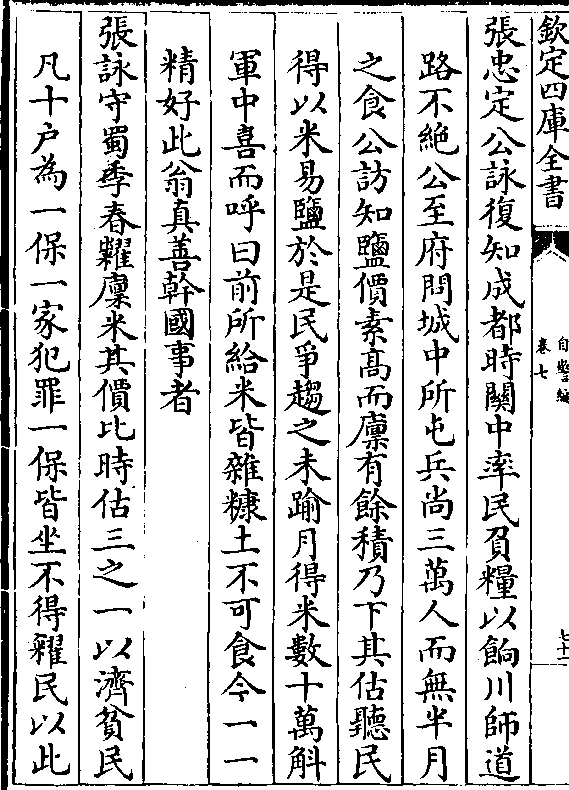 欽定四庫全書
自警編
卷七
七十二
張忠定公詠復知成都時關中率民負糧以餉川師道
路不絶公至府問城中所屯兵尚三萬人而無半月
之食公訪知鹽價素髙而廪有餘積乃下其估聽民
得以米易鹽於是民爭趨之未踰月得米數十萬斛
軍中喜而呼曰前所給米皆雜糠土不可食今一一
精好此翁真善幹國事者
張詠守蜀季春糶廪米其價比時估三之一以濟貧民
凡十户為一保一家犯罪一保皆坐不得糴民以此